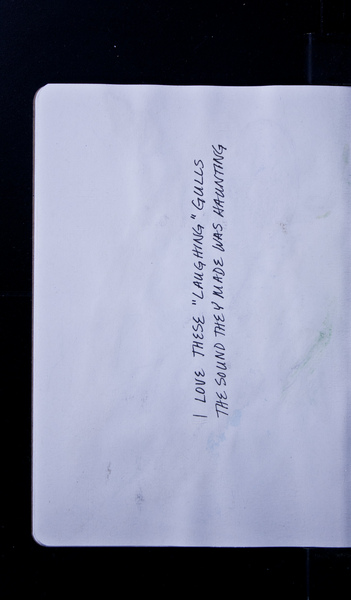 I LOVE THESE "LAUGHING" GULLS
THE SOUND THEY MADE WAS HAUNTING